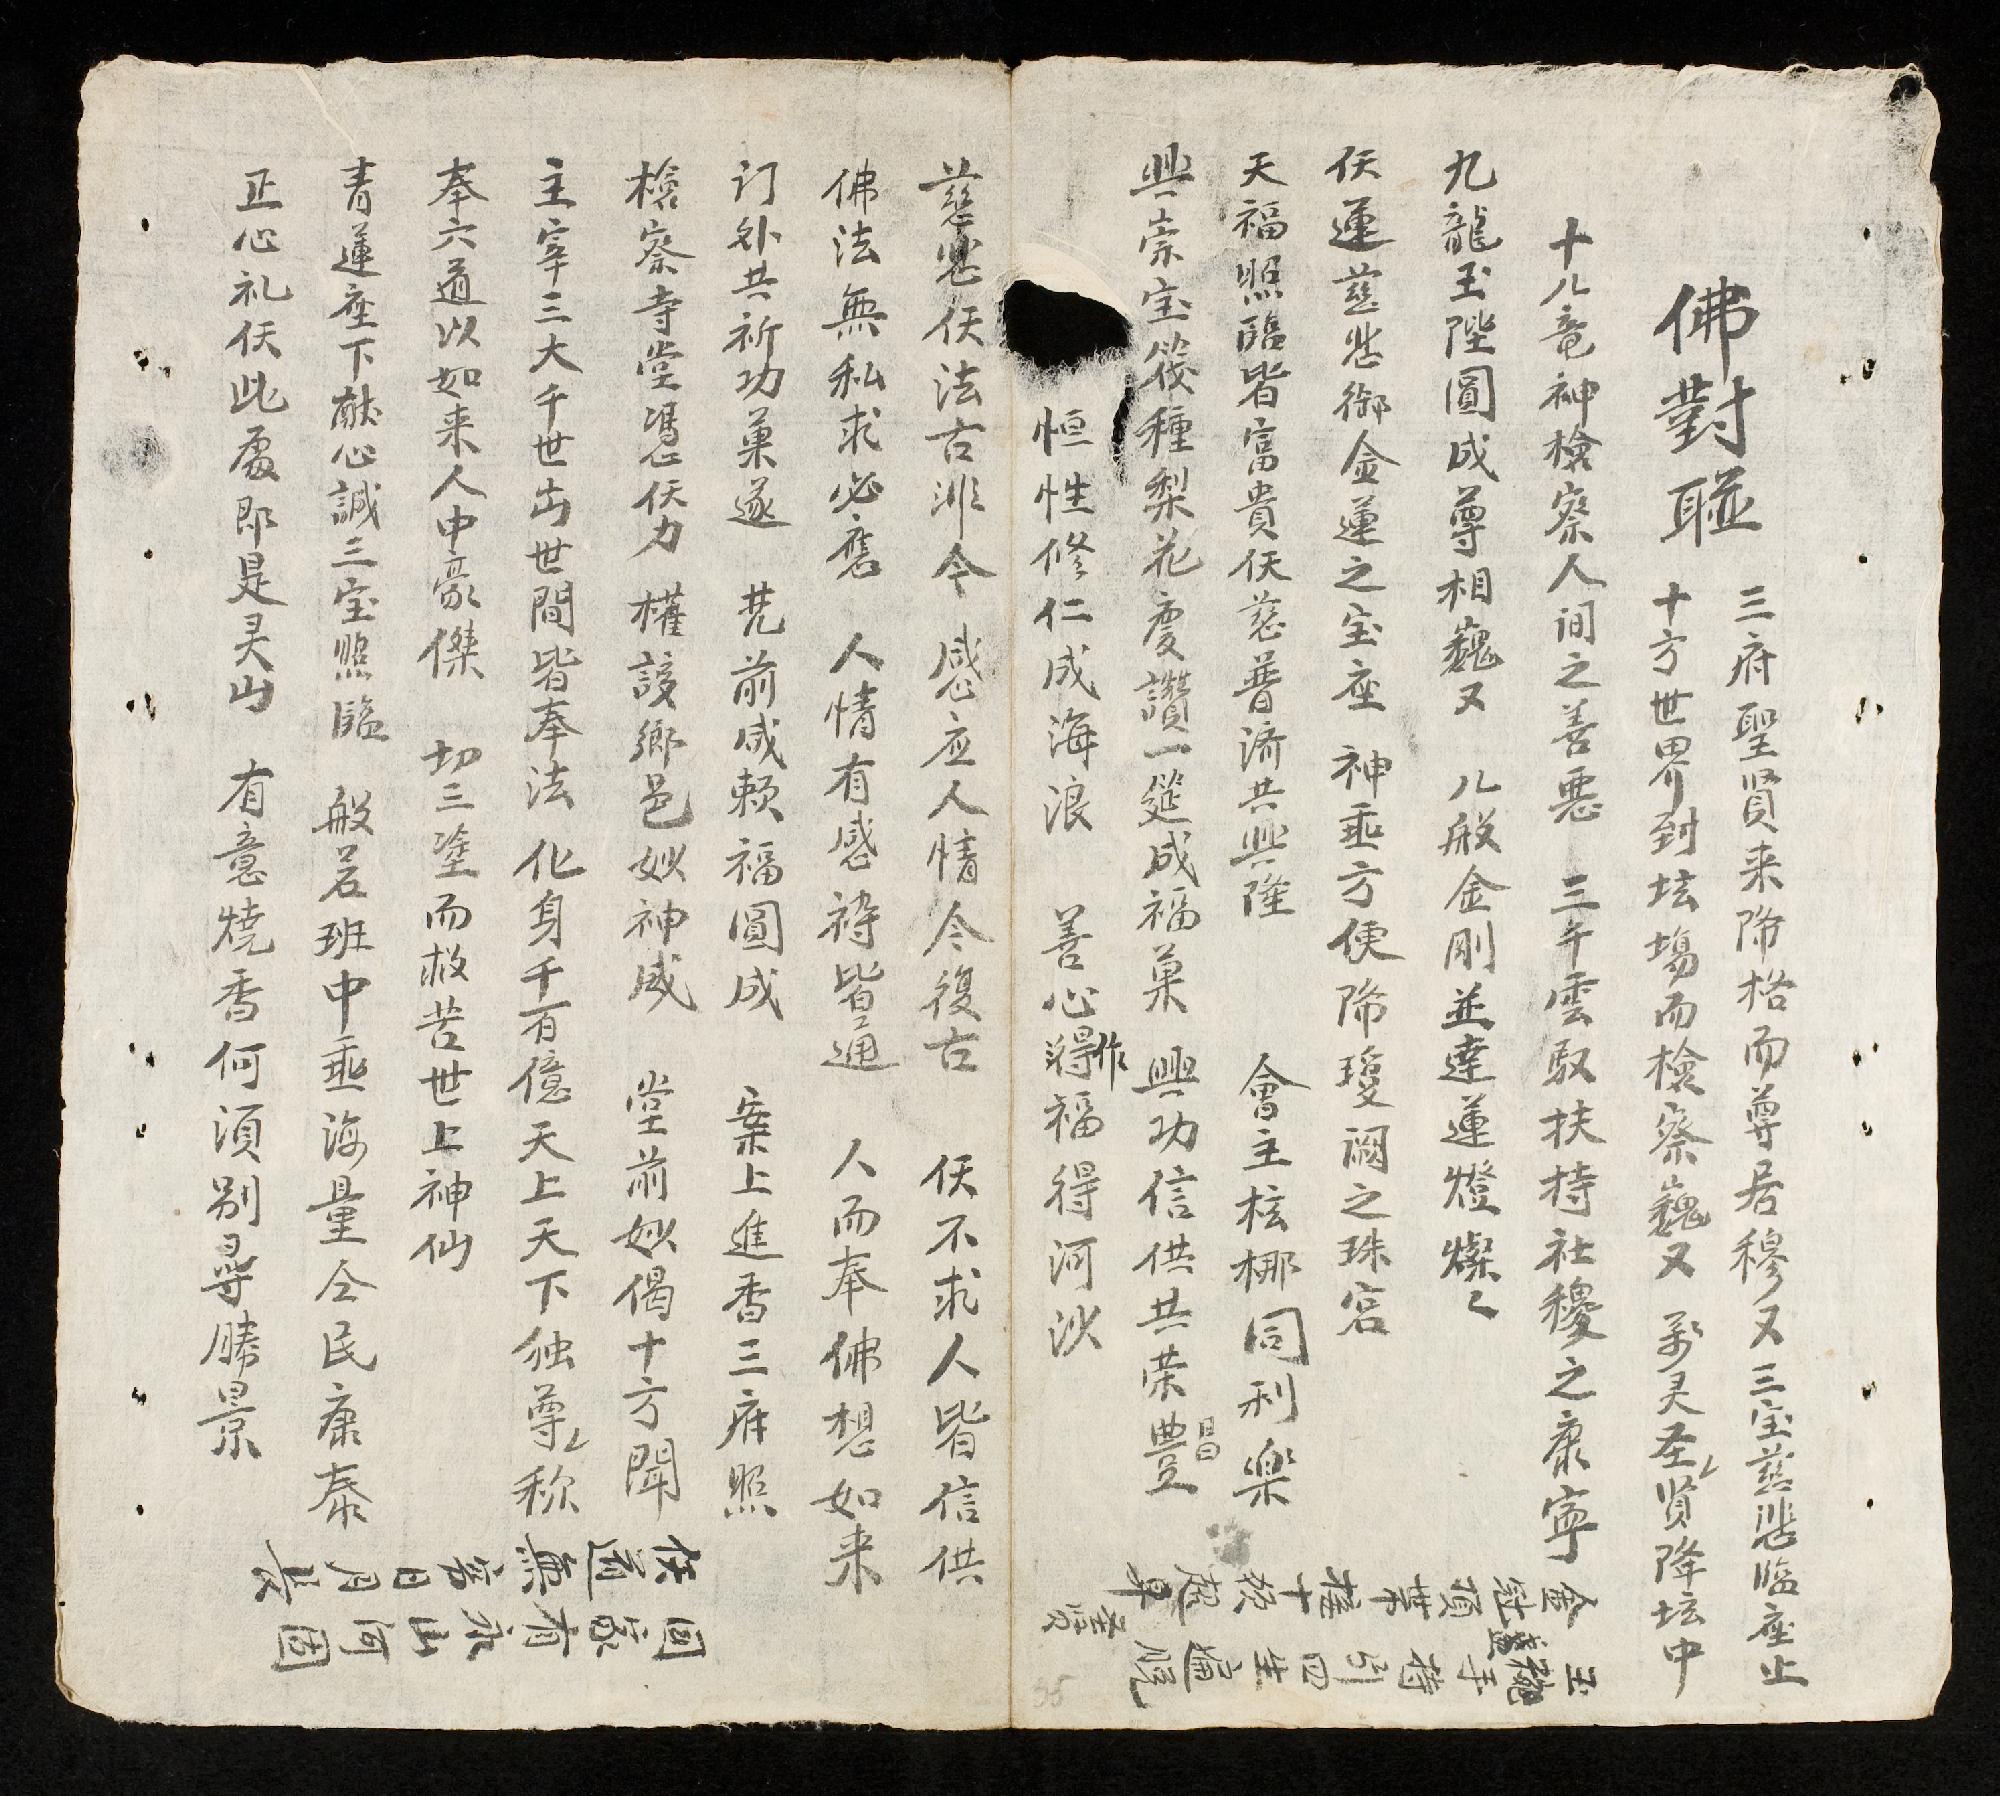 佛對聯
三府聖贤来降格而尊居穆又三宝慈悲临座止
十方世界到坛場而檢察巍又 灵圣贤降坛中
十八竜神檢察人间之善悪 三千雲馭扶持社稷之康寧
九龍玉陛圓成尊相巍又 八般金剛並達蓮燈燦
仸運慈悲御金蓮之宝座 神垂方便降瓊闕之珠宮
天福照臨皆富貴仸慈普濟共興隆 會主核梛同利樂
興崇宝筏種梨花慶讚一筵成福菓 興功信供共荣豊昌
恒性修仁成海浪 善心作福得河沙
慈悲仸法古非今 感应人情今復古 仸不求人皆信供
佛法無私求必應 人情有感祷皆通 人而奉佛想如来
门外共祈功菓遂 凳前咸賴福圓成 案上進香三府照
檢察寺堂憑仸力 權該鄉邑妙神威 堂前妙偈十方聞
主宰三大千世出世間皆奉法 化身千百億天上天下独尊称
奉六道以如来人中豪傑 切三塗而救苦世上神仙
青蓮座下献心誠三宝照臨 般若班中垂海量仝民康泰
正心礼仸此處即是灵山 有意燒香何須别尋勝景
金 頂 十
玉 手持引四生
仸 無 日月長
国家有永山河固